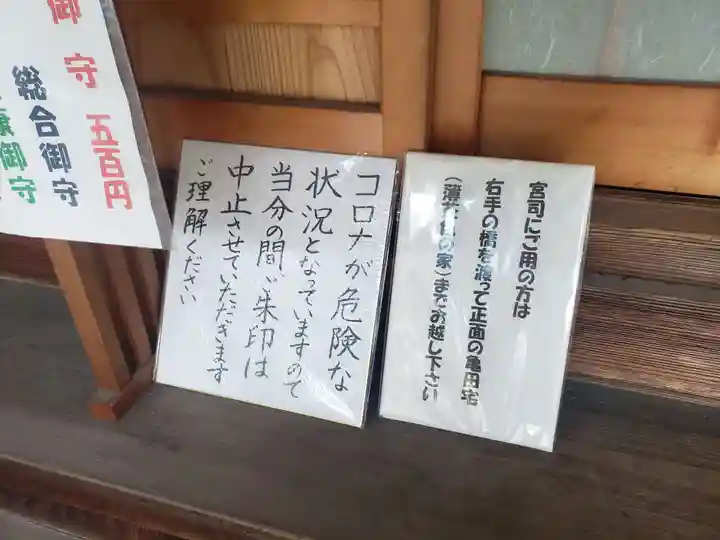 御守 五百円
総合御守
康御守
コロナが危険な
状況となっていますので
当分の間ご朱印は
中止させていただきます
ご理解ください
宮司にご用の方は
右手の橋を渡って正面の亀田宅
の家)までお越し下さい